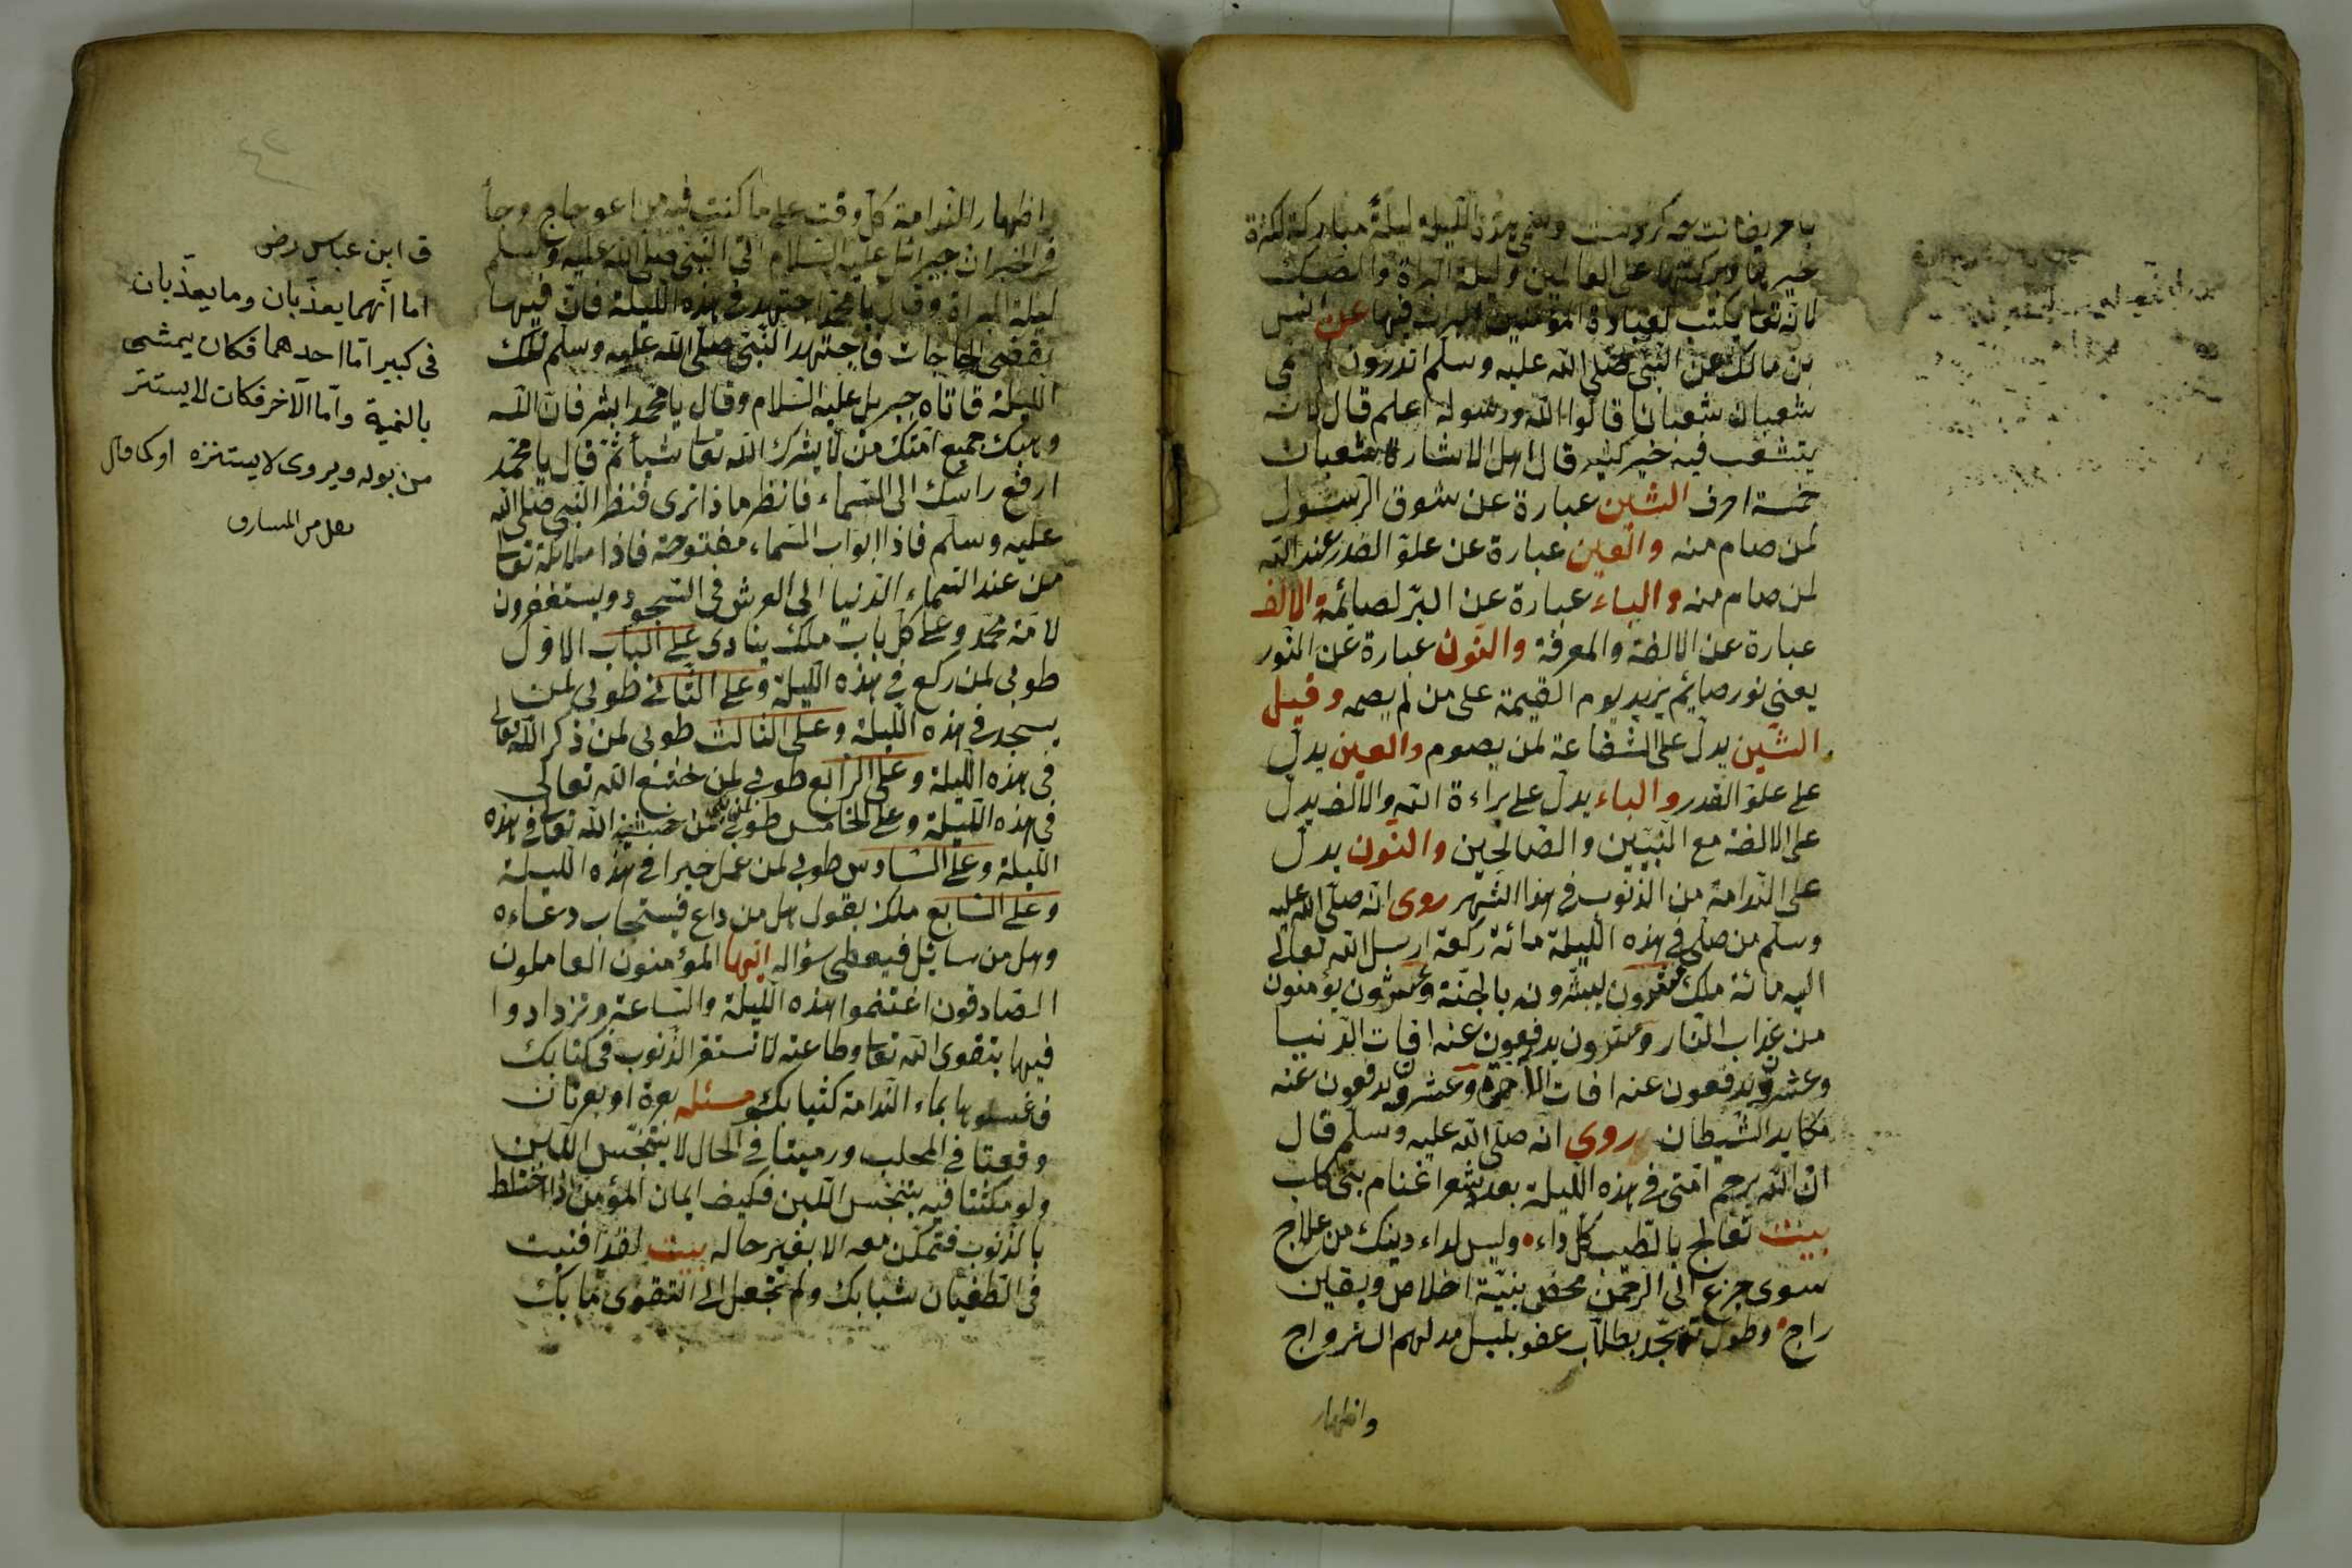 خيرها وبركتها على العالمين وليلة البراة والصك
لانه تعا يكتب لعباده المؤمنين البراة فيها عن انس
بن مالك عن النبى صلى الله عليه وسلم اتدرون لم سمى
شعبان شعبانا قالوا الله ورسوله اعلم قال لانه
يتشعب فيه خير كثير قال اهل الاشارة شعبان
خمسة احرف الشين عبارة عن شوق الرسول
لمن صام منه والعين عبارة عن علو القدر عند الله
لمن صام منه والباء عبارة عن البر لصائمه الالف
عبارة عن الالفة والمعرفة والنون عبارة عن النور
يعنى نور صايم يزيد يوم القيمة على من لم يصم وقيل
الشين يدل على الشفاعة لمن يصوم والعين يدل
على علو القدر والباء يدل على براءة الله والالف يدل
على الالفة مع النبيين والصالحين والنون يدل
على الندامة من الذنوب فى هذا الشهر روى انه صلى الله عليه
وسلم من صلى فى هذه الليلة مائة ركعة ارسل الله تعالى
اليه مائة ملك يبشرونه بالجنة وعشرون يؤمنون
من عذاب النار وعشرون يدفعون عنه افات الدنيا
وعشرون يدفعون عنه افات الاخرة وعشرون يدفعون عنه
مكايد الشيطان روى انه صلى الله عليه وسلم قال
ان الله يرحم امتى فى هذه الليلة بعدد شعر اغنام بنى كلب
بيت تعالج بالطبيب كل داء وليس لداء دينك من علاج
سوى جزع الى الرحمن محض بنية اخلاص ويقين
راج وطول تهجد بطلاب عفو بليل مدلهم الستر داج
واظهار
واظهار الندامة كل وقت على ما كنت فيه من اعوجاج وجأ
فى الخبر ان جبرائل عليه السلام اتى النبى صلى الله عليه وسلم
ليلة البراة وقال يا محمد اجتهد فى هذه الليلة فان فيها
يقضى الحاجات فاجتهد النبى صلى الله عليه وسلم تلك
الليلة فاتاه جبريل عليه السلام وقال يا محمد ابشر فان الله
وهبك جميع امتك من لا يشرك الله تعا شيأ ثم قال يا محمد
ارفع راسك الى السماء فانظر ماذا ترى فنظر النبى صلى الله
عليه وسلم فاذا ابواب السماء مفتوحة فاذا ملائكة تعا
من عند السماء الدنيا الى العرش فى السجود ويستغفرون
لامة محمد وعلى كل باب ملك ينادى على الباب الاول
طوبى لمن ركع فى هذه الليلة وعلى الثانى طوبى لمن
يسجد فى هذه الليلة وعلى الثالث طوبى لمن ذكر الله تعالى
فى هذه الليلة وعلى الرابع طوبى لمن خشع الله تعالى
فى هذه الليلة وعلى الخامس طوبى لمن خشية الله تعا فى هذه
الليلة وعلى السادس طوبى لمن عمل خيرا فى هذه الليلة
وعلى السابع ملك يقول هل من داع فيستجاب دعاءه
وهل من سائل فيعطى سؤاله ايها المؤمنون العاملون
الصادقون اغتنموا هذه الليلة والساعة وتزدادوا
فيها بتقوى الله تعا وطاعته لا تستقر الذنوب فى كتابك
فاغسلوها بماء الندامة كثيابك مسئله بعرة او بعرتان
وقعتا فى المحلب ورميتا فى الحال لا يتنجس اللبن
ولو مكثتا فيه يتنجس اللبن فكيف ايمان المؤمن اذا اختلط
بالذنوب فتمكن معه الا بغير حاله بيت لقد افنيت
فى الطغيان شبابك ولم تجعل الى التقوى مآبك
ق ابن عباس رض
اما انهما يعذبان وما يعذبان
فى كبير اما احدهما فكان يمشى
بالنميمة واما الآخر فكان لا يستتر
من بوله ويروى لا يستنزه او كما قال
نقل من المشارق